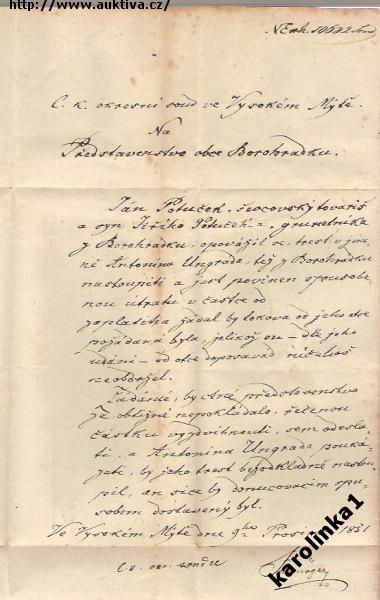 http://www.auktiva.cz/
C. k. okresní soud ve Vysokém Mýtě.
Na
Představenstvo obce Borohrádku.
Ján Potuček, ševcovský tovariš
a syn Jiřího Potuček
z Borohrádku, opovážil se, trest v
ně Antonína Ungrada, též z Borohrádku
nastoupiti a jest povinen spůsobe-
nou útratu v částce od
zaplatiti žádal by taková od jeho otce
požádaná byla, jelikož on – dle jeho
udání – od otce doposavad
neobdržel.
Žádáme, by ctné představenstvo
za obtížné nepokládalo, řečenou
částku vyzdvihnouti, sem odesla-
ti, a Antonína Ungrada pouká-
zati, by jeho trest bezodkladně nastou-
pil, an sice by donucovacím spů-
sobem dostavený byl.
Ve Vysokém Mýtě dne 9ho 1851
C. k. okr. soudu
karolinka1